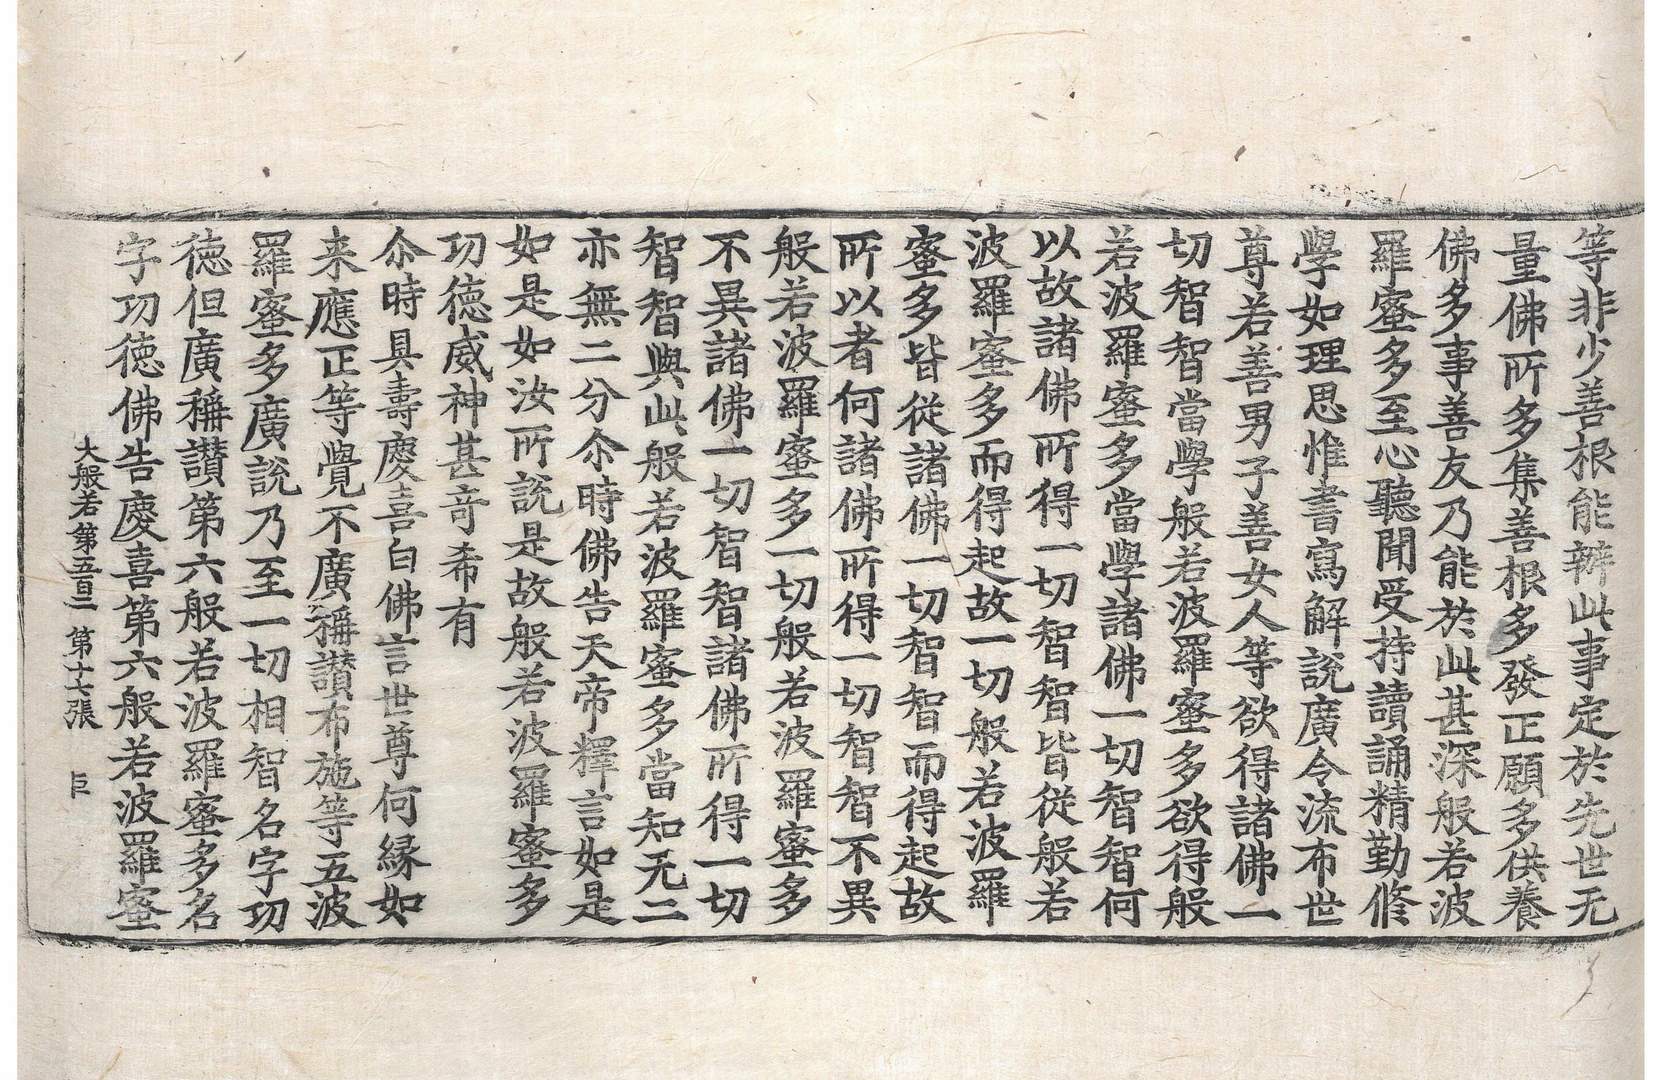 等非少善根能辦此事定於先世无
量佛所多集善根多發正願多供養
佛多事善友乃能於此甚深般若波
羅蜜多至心聽聞受持讀誦精勤修
學如理思惟書寫解說廣令流布世
尊若善男子善女人等欲得諸佛一
切智智當學般若波羅蜜多欲得般
若波羅蜜多當學諸佛一切智智何
以故諸佛所得一切智智皆從般若
波羅蜜多而得起故一切般若波羅
蜜多皆從諸佛一切智智而得起故
所以者何諸佛所得一切智智不異
般若波羅蜜多一切般若波羅蜜多
不異諸佛一切智智諸佛所得一切
智智與此般若波羅蜜多當知无二
亦無二分尒時佛告天帝釋言如是
如是如汝所說是故般若波羅蜜多
功德威神甚奇希有
尒時具壽慶喜白佛言世尊何緣如
来應正等覺不廣稱讃布施等五波
羅蜜多廣說乃至一切相智名字功
德但廣稱讃第六般若波羅蜜多名
字功德佛告慶喜第六般若波羅蜜
大般若第五百二 第十七張 巨